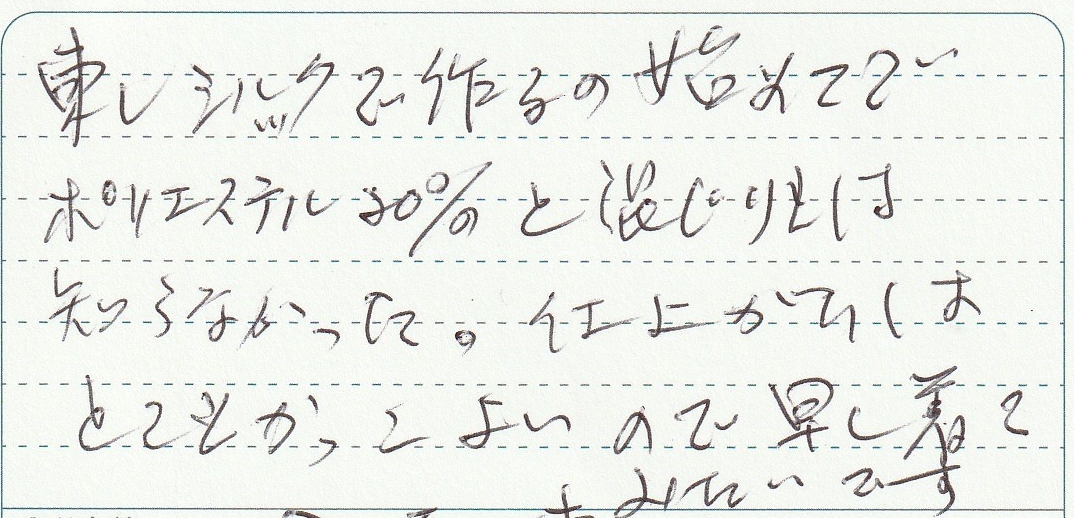 東レシルックで作るの始めてで
ポリエステル20%と混じりとは
知らなかった。仕上がりは
とてもかっこよいので早く着て
みたいです